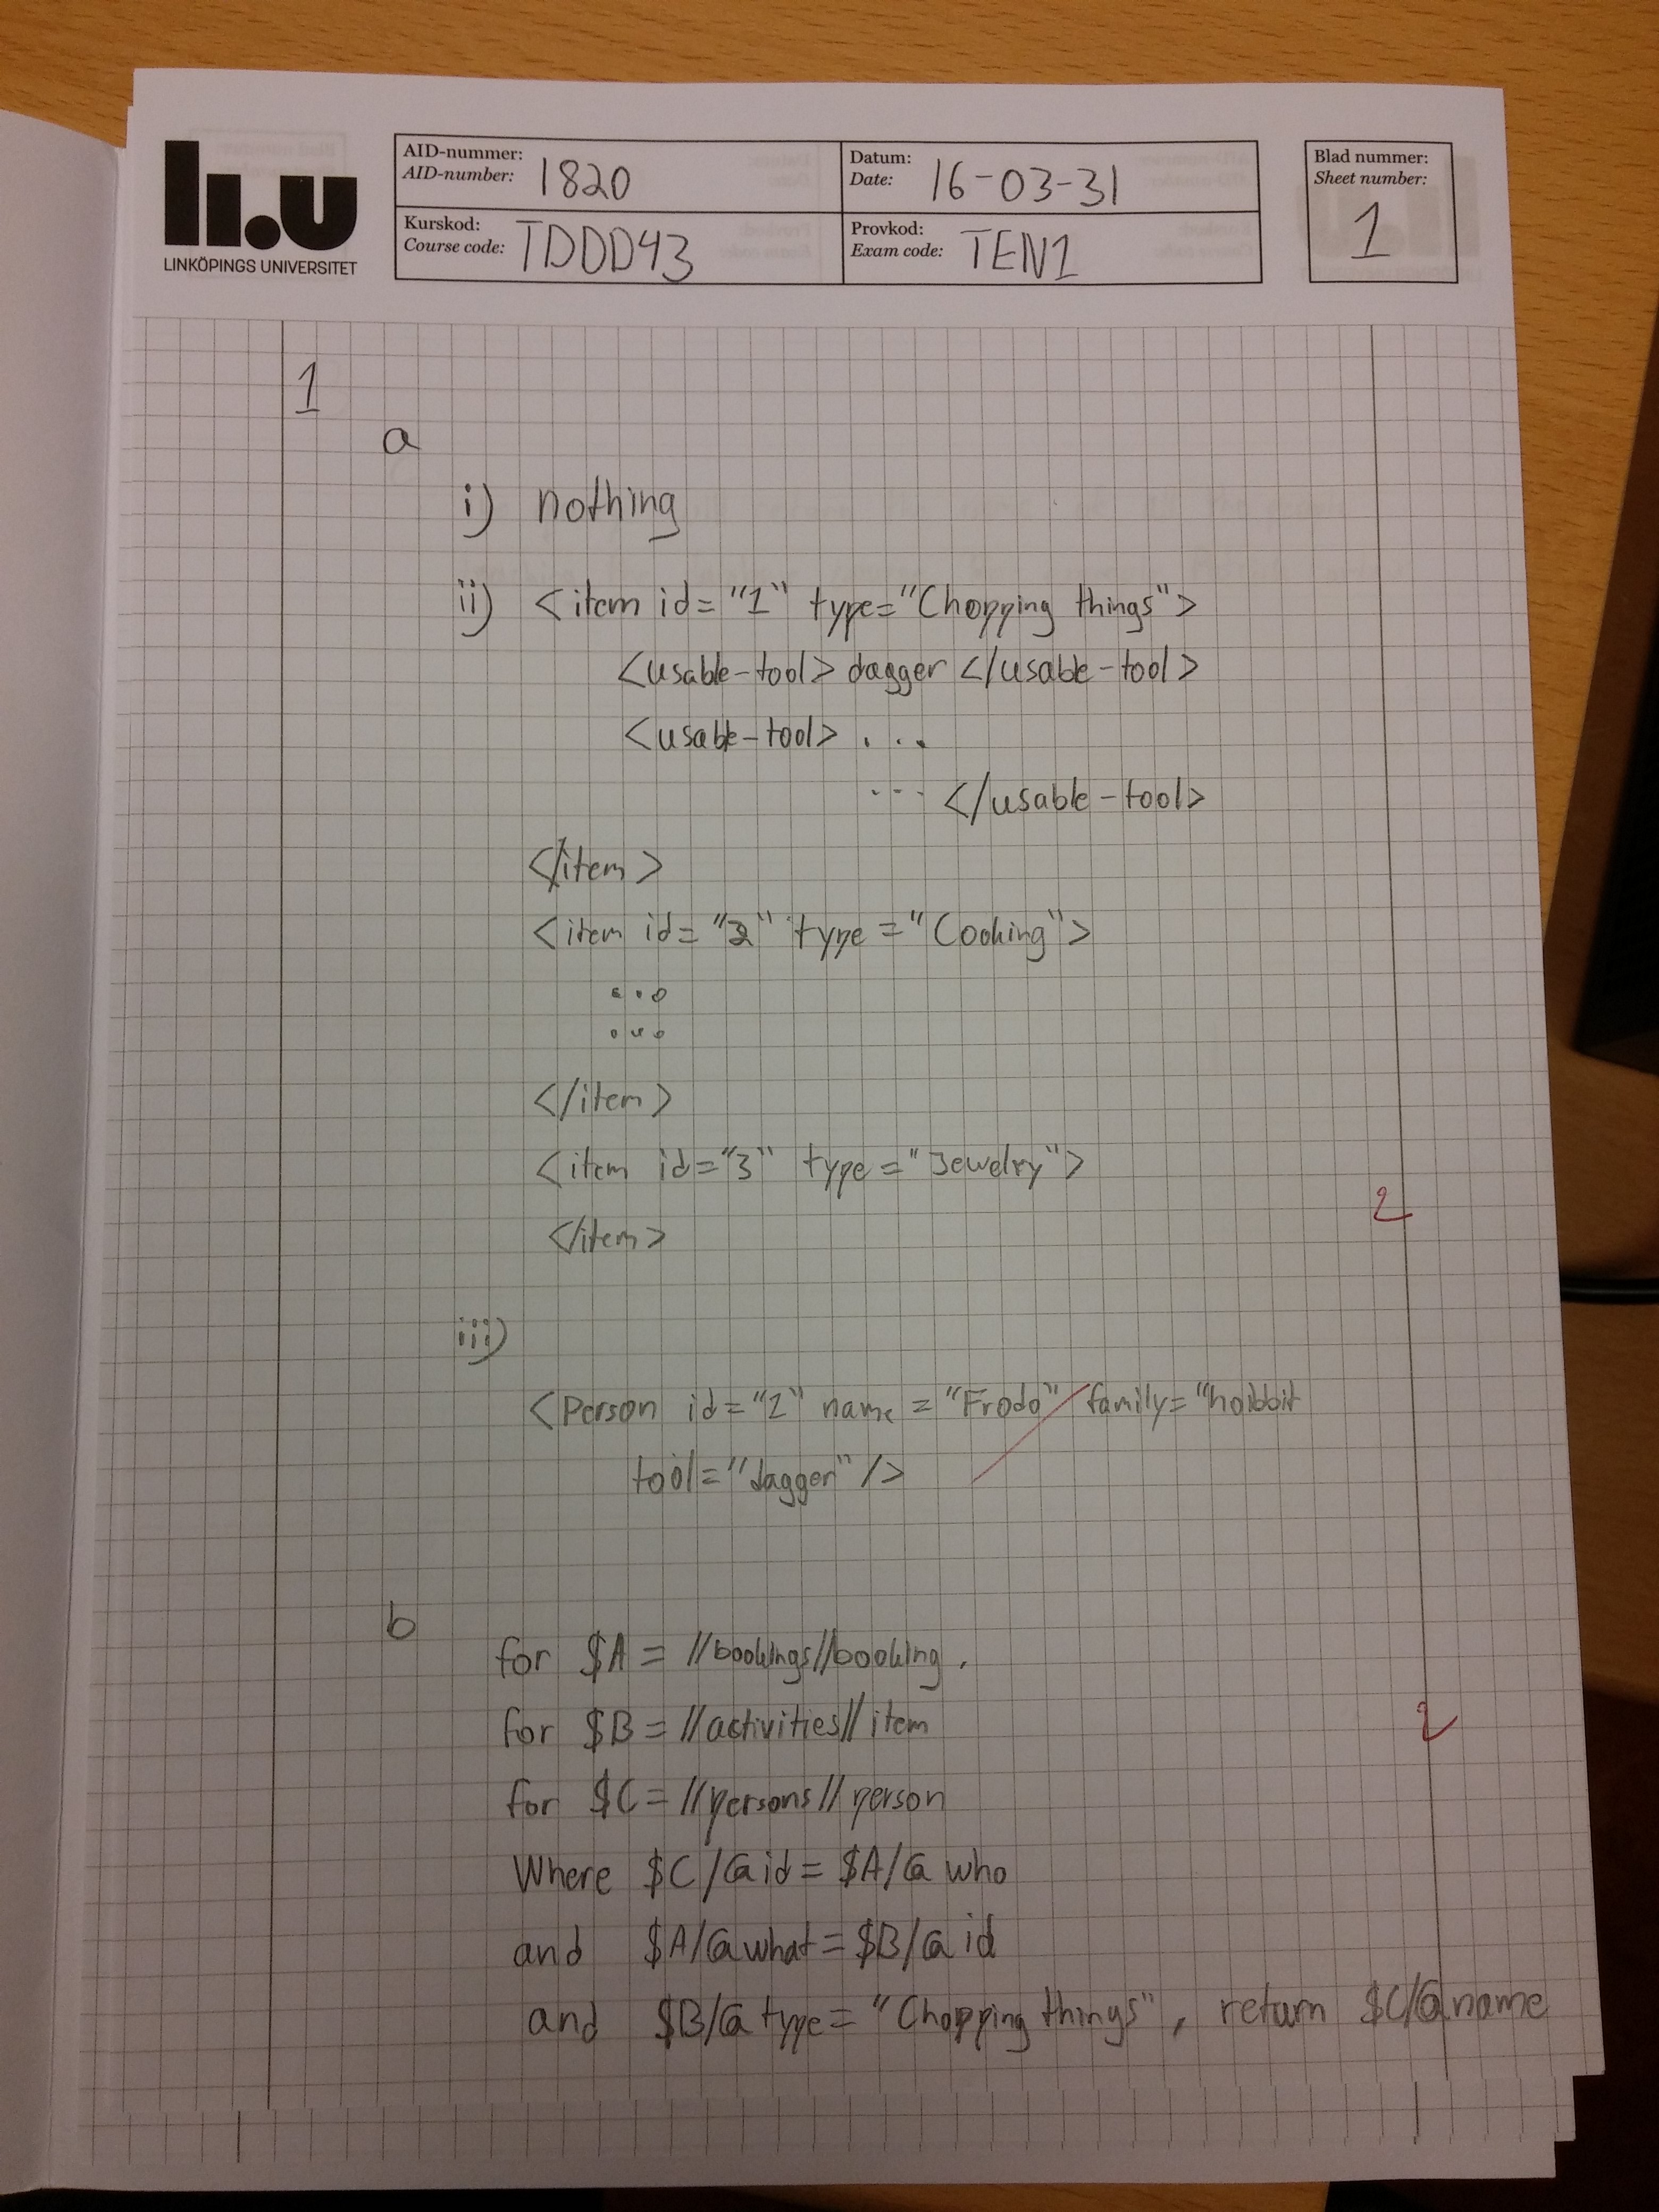 li.u
LINKÖPINGS UNIVERSITET
AID-nummer:
AID-number: 1820
Datum:
Date: 16-03-31
Blad nummer:
Sheet number:
1
Kurskod:
Course code: TDDD43
Provkod:
Exam code: TEN1
1
a
i) nothing
ii) <item id="1" type="Chopping things">
<usable-tool> dagger </usable-tool>
<usable-tool> ...
... </usable-tool>
</item>
<item id="2" type="Cooking">
...
...
</item>
<item id="3" type="Jewelry">
</item>
2
iii)
<Person id="1" name="Frodo" family="hoibbit
tool="dagger" />
b
for $A = //bookings//booking,
for $B = //activities//item
2
for $C = //persons//person
Where $C/@id = $A/@who
and $A/@what = $B/@id
and $B/@type = "Chopping things", return $C/@name